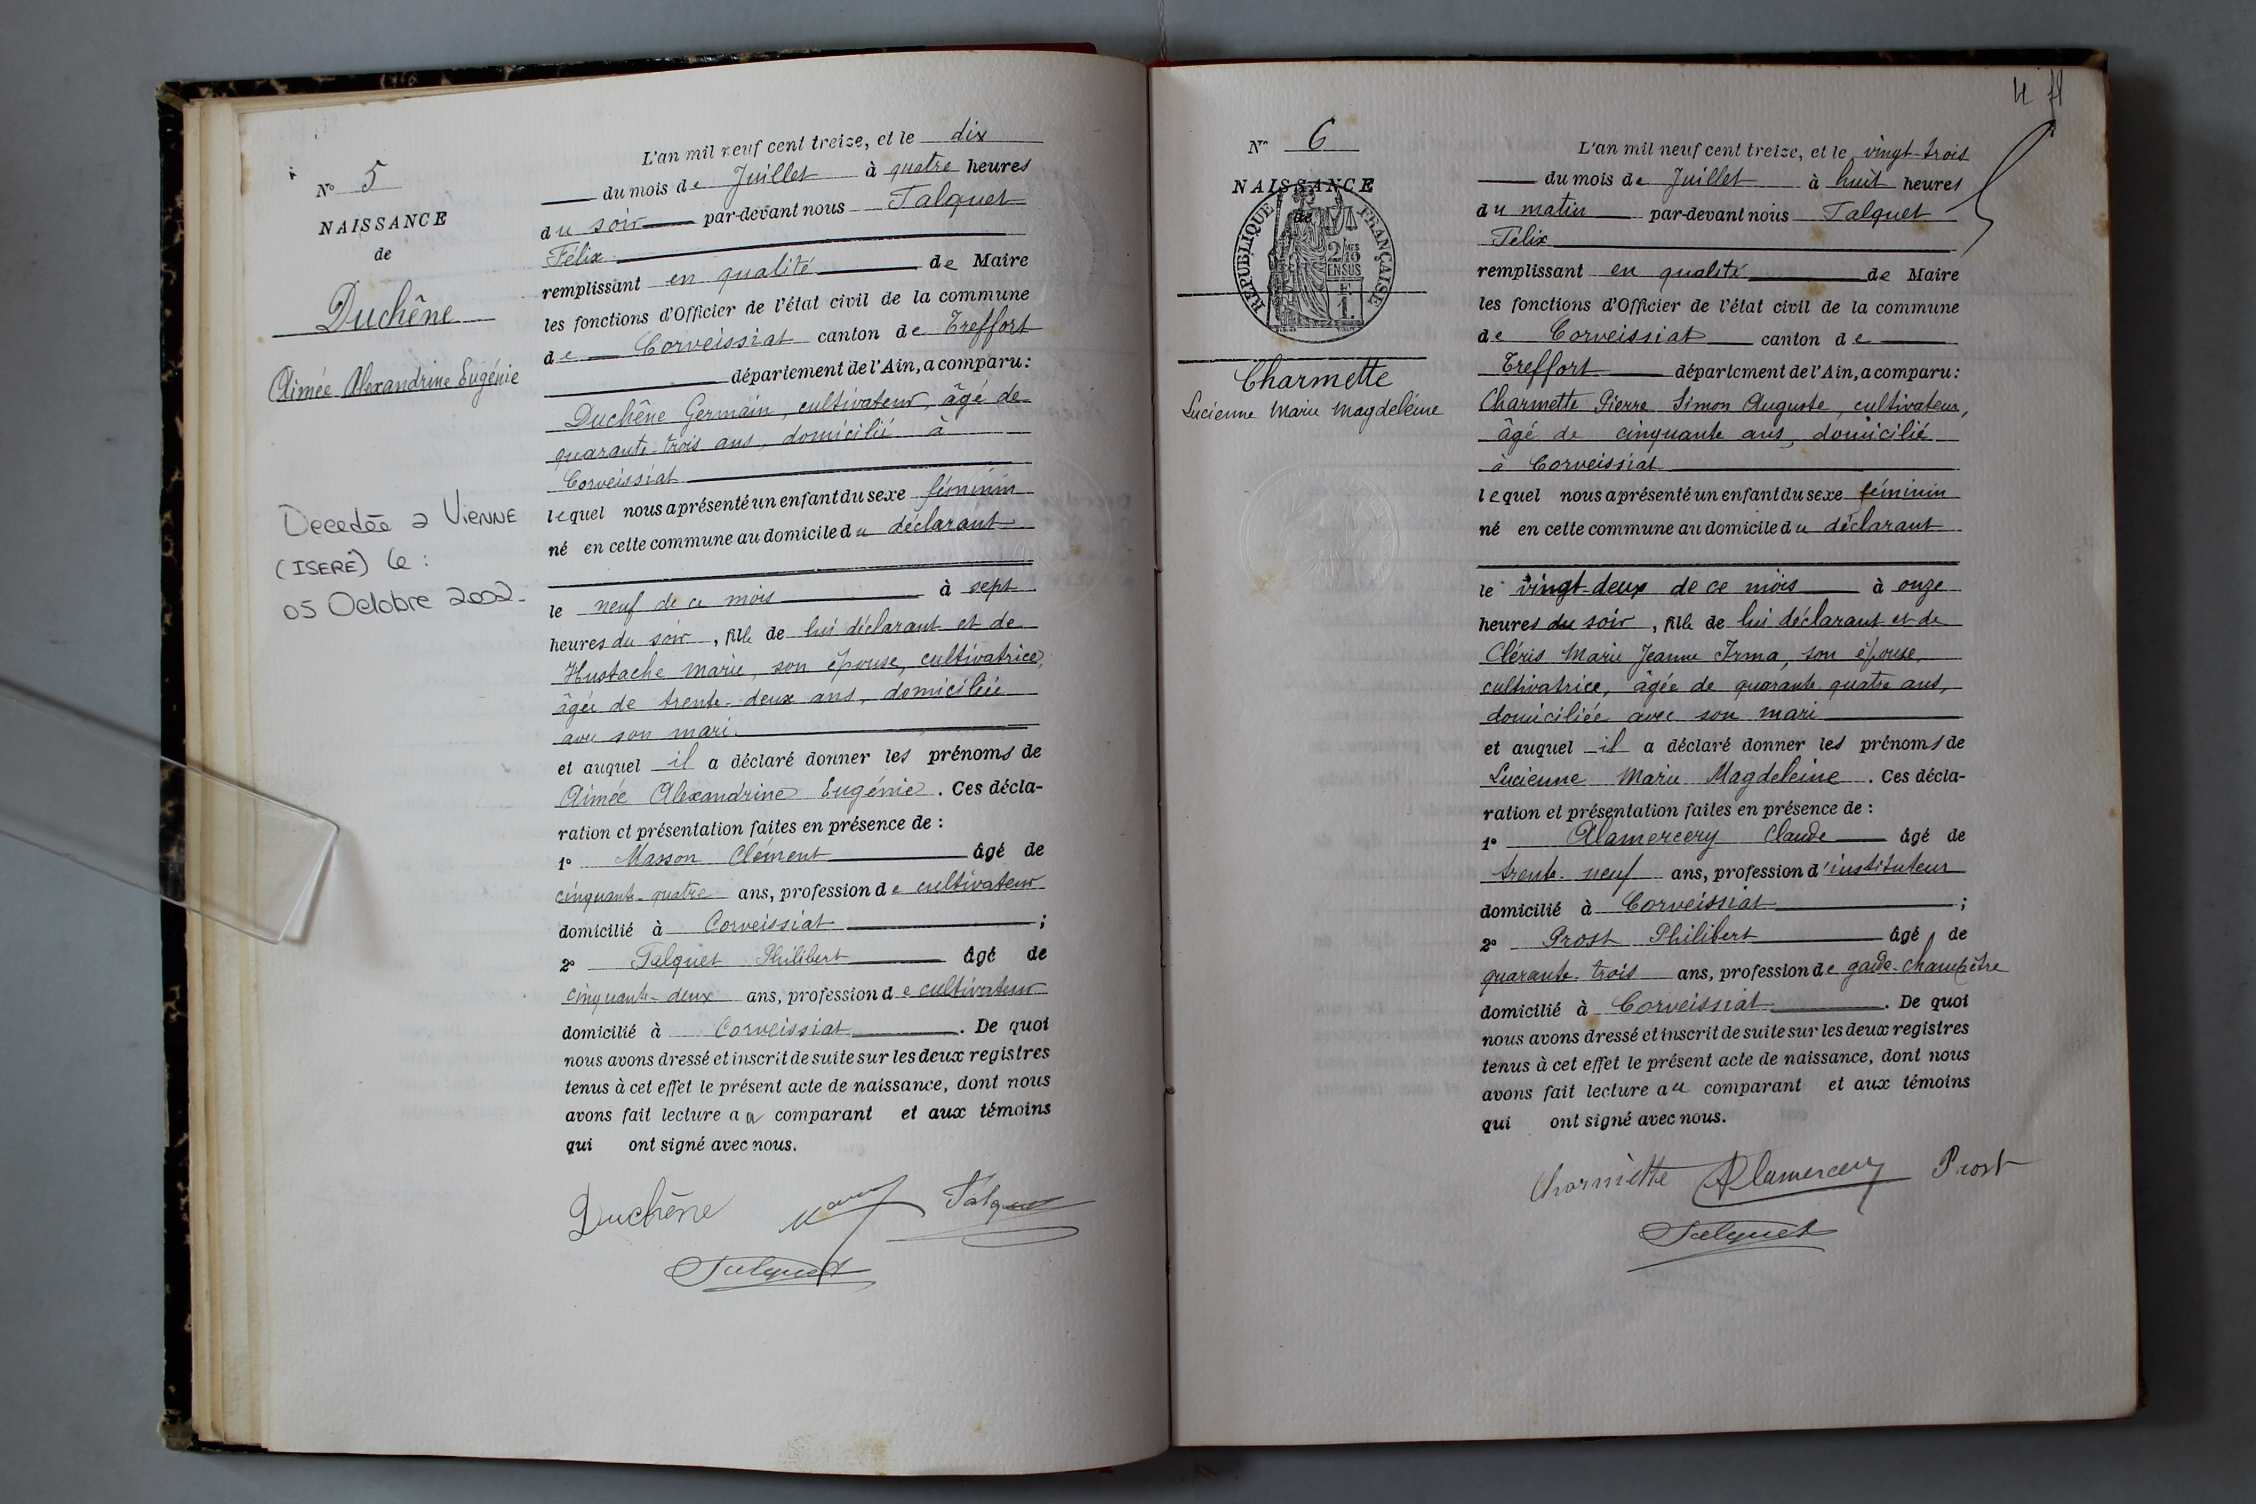 N° 5
NAISSANCE
de
Duchêne
Aimée Alexandrine Eugénie
Decedée a VIENNE
(ISERE) le :
05 Octobre 2002.
L'an mil neuf cent treize, et le dix
du mois de Juillet à quatre heures
du soir par-devant nous Talquet
Félix
remplissant en qualité de Maire
les fonctions d'Officier de l'état civil de la commune
de Corveissiat canton de Treffort
département de l'Ain, a comparu :
Duchêne Germain, cultivateur, âgé de
quarante-trois ans, domicilié à
Corveissiat
lequel nous a présenté un enfant du sexe féminin
né en cette commune au domicile du déclarant
le neuf de ce mois à sept
heures du soir, fille de lui déclarant et de
Hustache Marie, son épouse, cultivatrice,
âgée de trente-deux ans, domiciliée
avec son mari.
et auquel il a déclaré donner les prénoms de
Aimée Alexandrine Eugénie. Ces décla-
ration et présentation faites en présence de :
1° Masson Clément âgé de
cinquante-quatre ans, profession de cultivateur
domicilié à Corveissiat ;
2° Talquet Philibert âgé de
cinquante-deux ans, profession de cultivateur
domicilié à Corveissiat. De quoi
nous avons dressé et inscrit de suite sur les deux registres
tenus à cet effet le présent acte de naissance, dont nous
avons fait lecture au comparant et aux témoins
qui ont signé avec nous.
Duchêne Talquet
Talquet
4
N° 6
NAISSANCE
de
RÉPUBLIQUE FRANÇAISE
2/10
EN SUS
F
1.
Charmette
Lucienne Marie Magdeleine
L'an mil neuf cent treize, et le vingt-trois
du mois de Juillet à huit heures
du matin par-devant nous Talquet
Félix
remplissant en qualité de Maire
les fonctions d'Officier de l'état civil de la commune
de Corveissiat canton de
Treffort département de l'Ain, a comparu :
Charmette Pierre Simon Auguste, cultivateur,
âgé de cinquante ans, domicilié
à Corveissiat
lequel nous a présenté un enfant du sexe féminin
né en cette commune au domicile du déclarant
le vingt-deux de ce mois à onze
heures du soir, fille de lui déclarant et de
Cléris Marie Jeanne Irma, son épouse,
cultivatrice, âgée de quarante quatre ans,
domiciliée avec son mari
et auquel il a déclaré donner les prénoms de
Lucienne Marie Magdeleine. Ces décla-
ration et présentation faites en présence de :
1° Alamercery Claude âgé de
trente-neuf ans, profession d'instituteur
domicilié à Corveissiat ;
2° Prost Philibert âgé de
quarante-trois ans, profession de garde-champêtre
domicilié à Corveissiat. De quoi
nous avons dressé et inscrit de suite sur les deux registres
tenus à cet effet le présent acte de naissance, dont nous
avons fait lecture au comparant et aux témoins
qui ont signé avec nous.
Charmette Alamercery Prost
Talquet